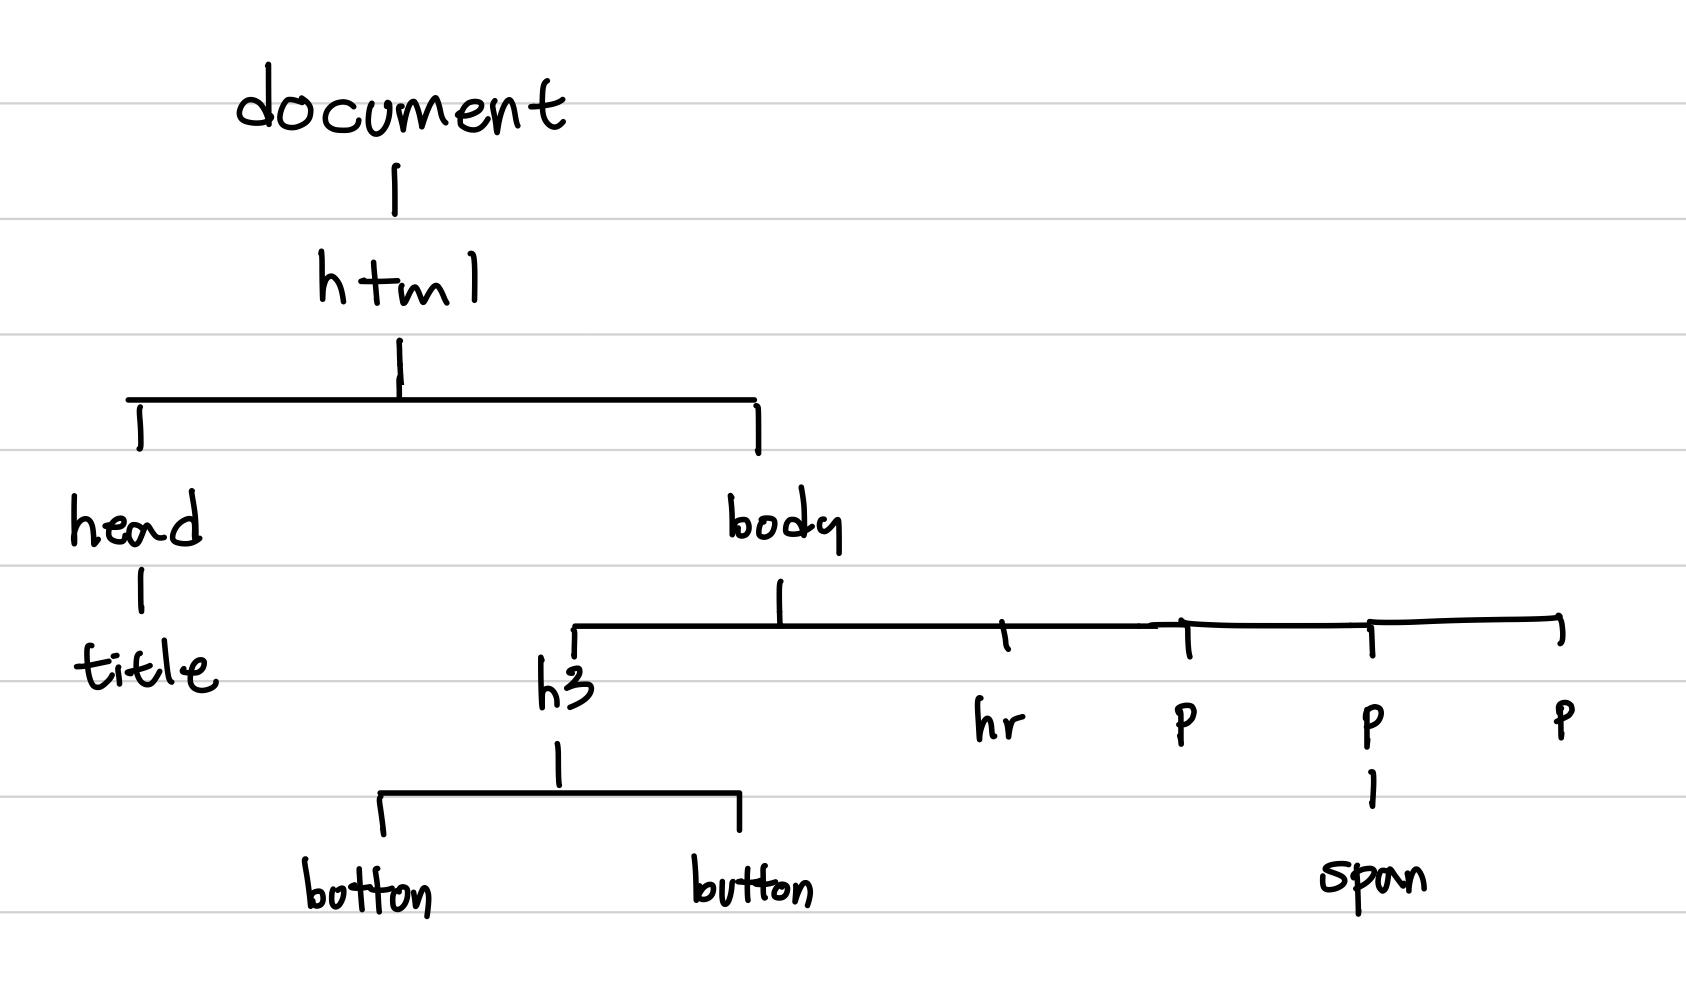 document
html
head body
title
h3
hr p p p
button button
span